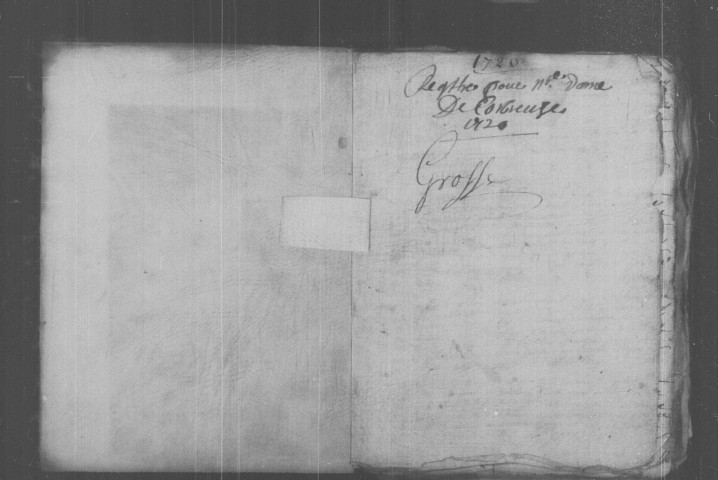 1720
Regtre pour Nre Dame
De Corbreuze
1720
Grosse